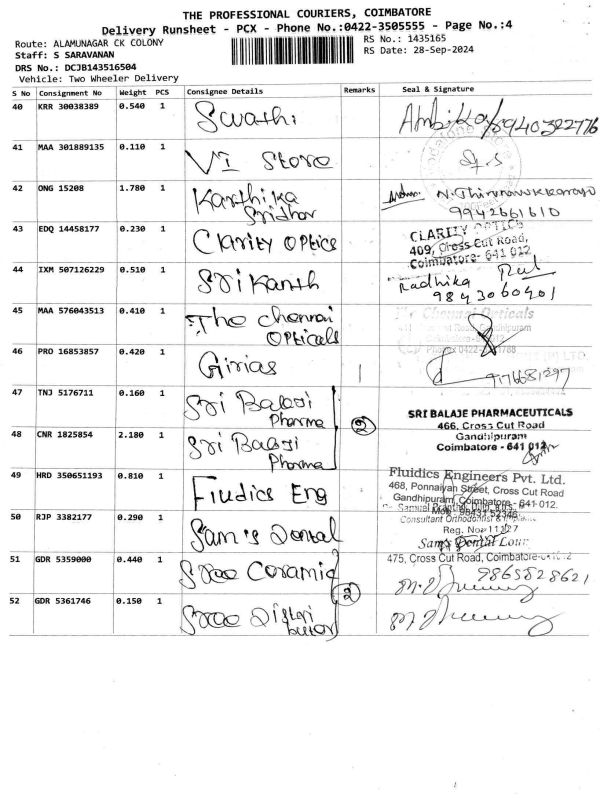 THE PROFESSIONAL COURIERS, COIMBATORE
Delivery Runsheet - PCX - Phone No.:0422-3505555 - Page No.:4
Route: ALAMUNAGAR CK COLONY
RS No.: 1435165
Staff: S SARAVANAN
RS Date: 28-Sep-2024
DRS No.: DCJB143516504
Vehicle: Two Wheeler Delivery
S No Consignment No Weight PCS Consignee Details Remarks Seal & Signature
40 KRR 30038389 0.540 1 Swathi Ambika 8940322776
41 MAA 301889135 0.110 1 VI Store
42 ONG 15208 1.780 1 Karthika
Sridhar
9942661610
43 EDQ 14458177 0.230 1 Clarity Optics
CLARITY OPTICS
409, Cross Cut Road,
Coimbatore- 641 012
44 IXM 507126229 0.510 1 Srikanth Radhika
9843060401
45 MAA 576043513 0.410 1 The Chennai
Opticals
Chennai Opticals
46 PRO 16853857 0.420 1 Girias
9176681297
47 TNJ 5176711 0.160 1 Sri Balaji
Pharma
2
SRI BALAJE PHARMACEUTICALS
466, Cross Cut Road
Gandhipuram
Coimbatore - 641 012
48 CNR 1825854 2.180 1 Sri Balaji
Pharma
49 HRD 350651193 0.810 1 Fiudics Eng
Fluidics Engineers Pvt. Ltd.
468, Ponnaiyan Street, Cross Cut Road
Gandhipuram, Coimbatore - 641-012.
50 RJP 3382177 0.290 1 Sam's Dental
Consultant Orthodontist &
Reg. No: 11327
475, Cross Cut Road, Coimbatore
51 GDR 5359000 0.440 1 Sree Ceramic
9865528621
2
52 GDR 5361746 0.150 1 Sree Distri
butor